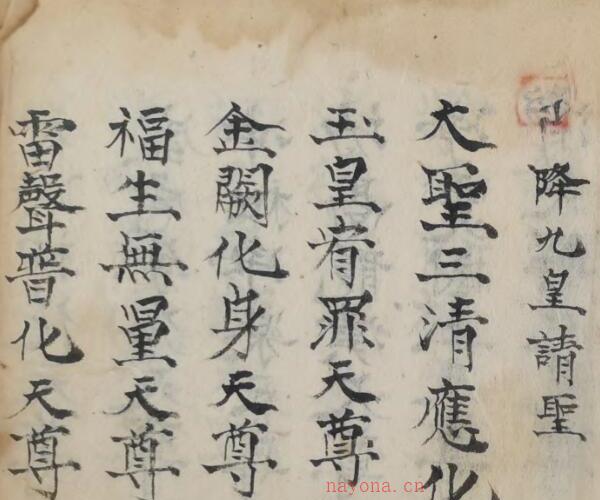 降九皇請聖
大聖三清應化
玉皇宥罪天尊
金闕化身天尊
福生無量天尊
雷聲普化天尊
nayona.cn